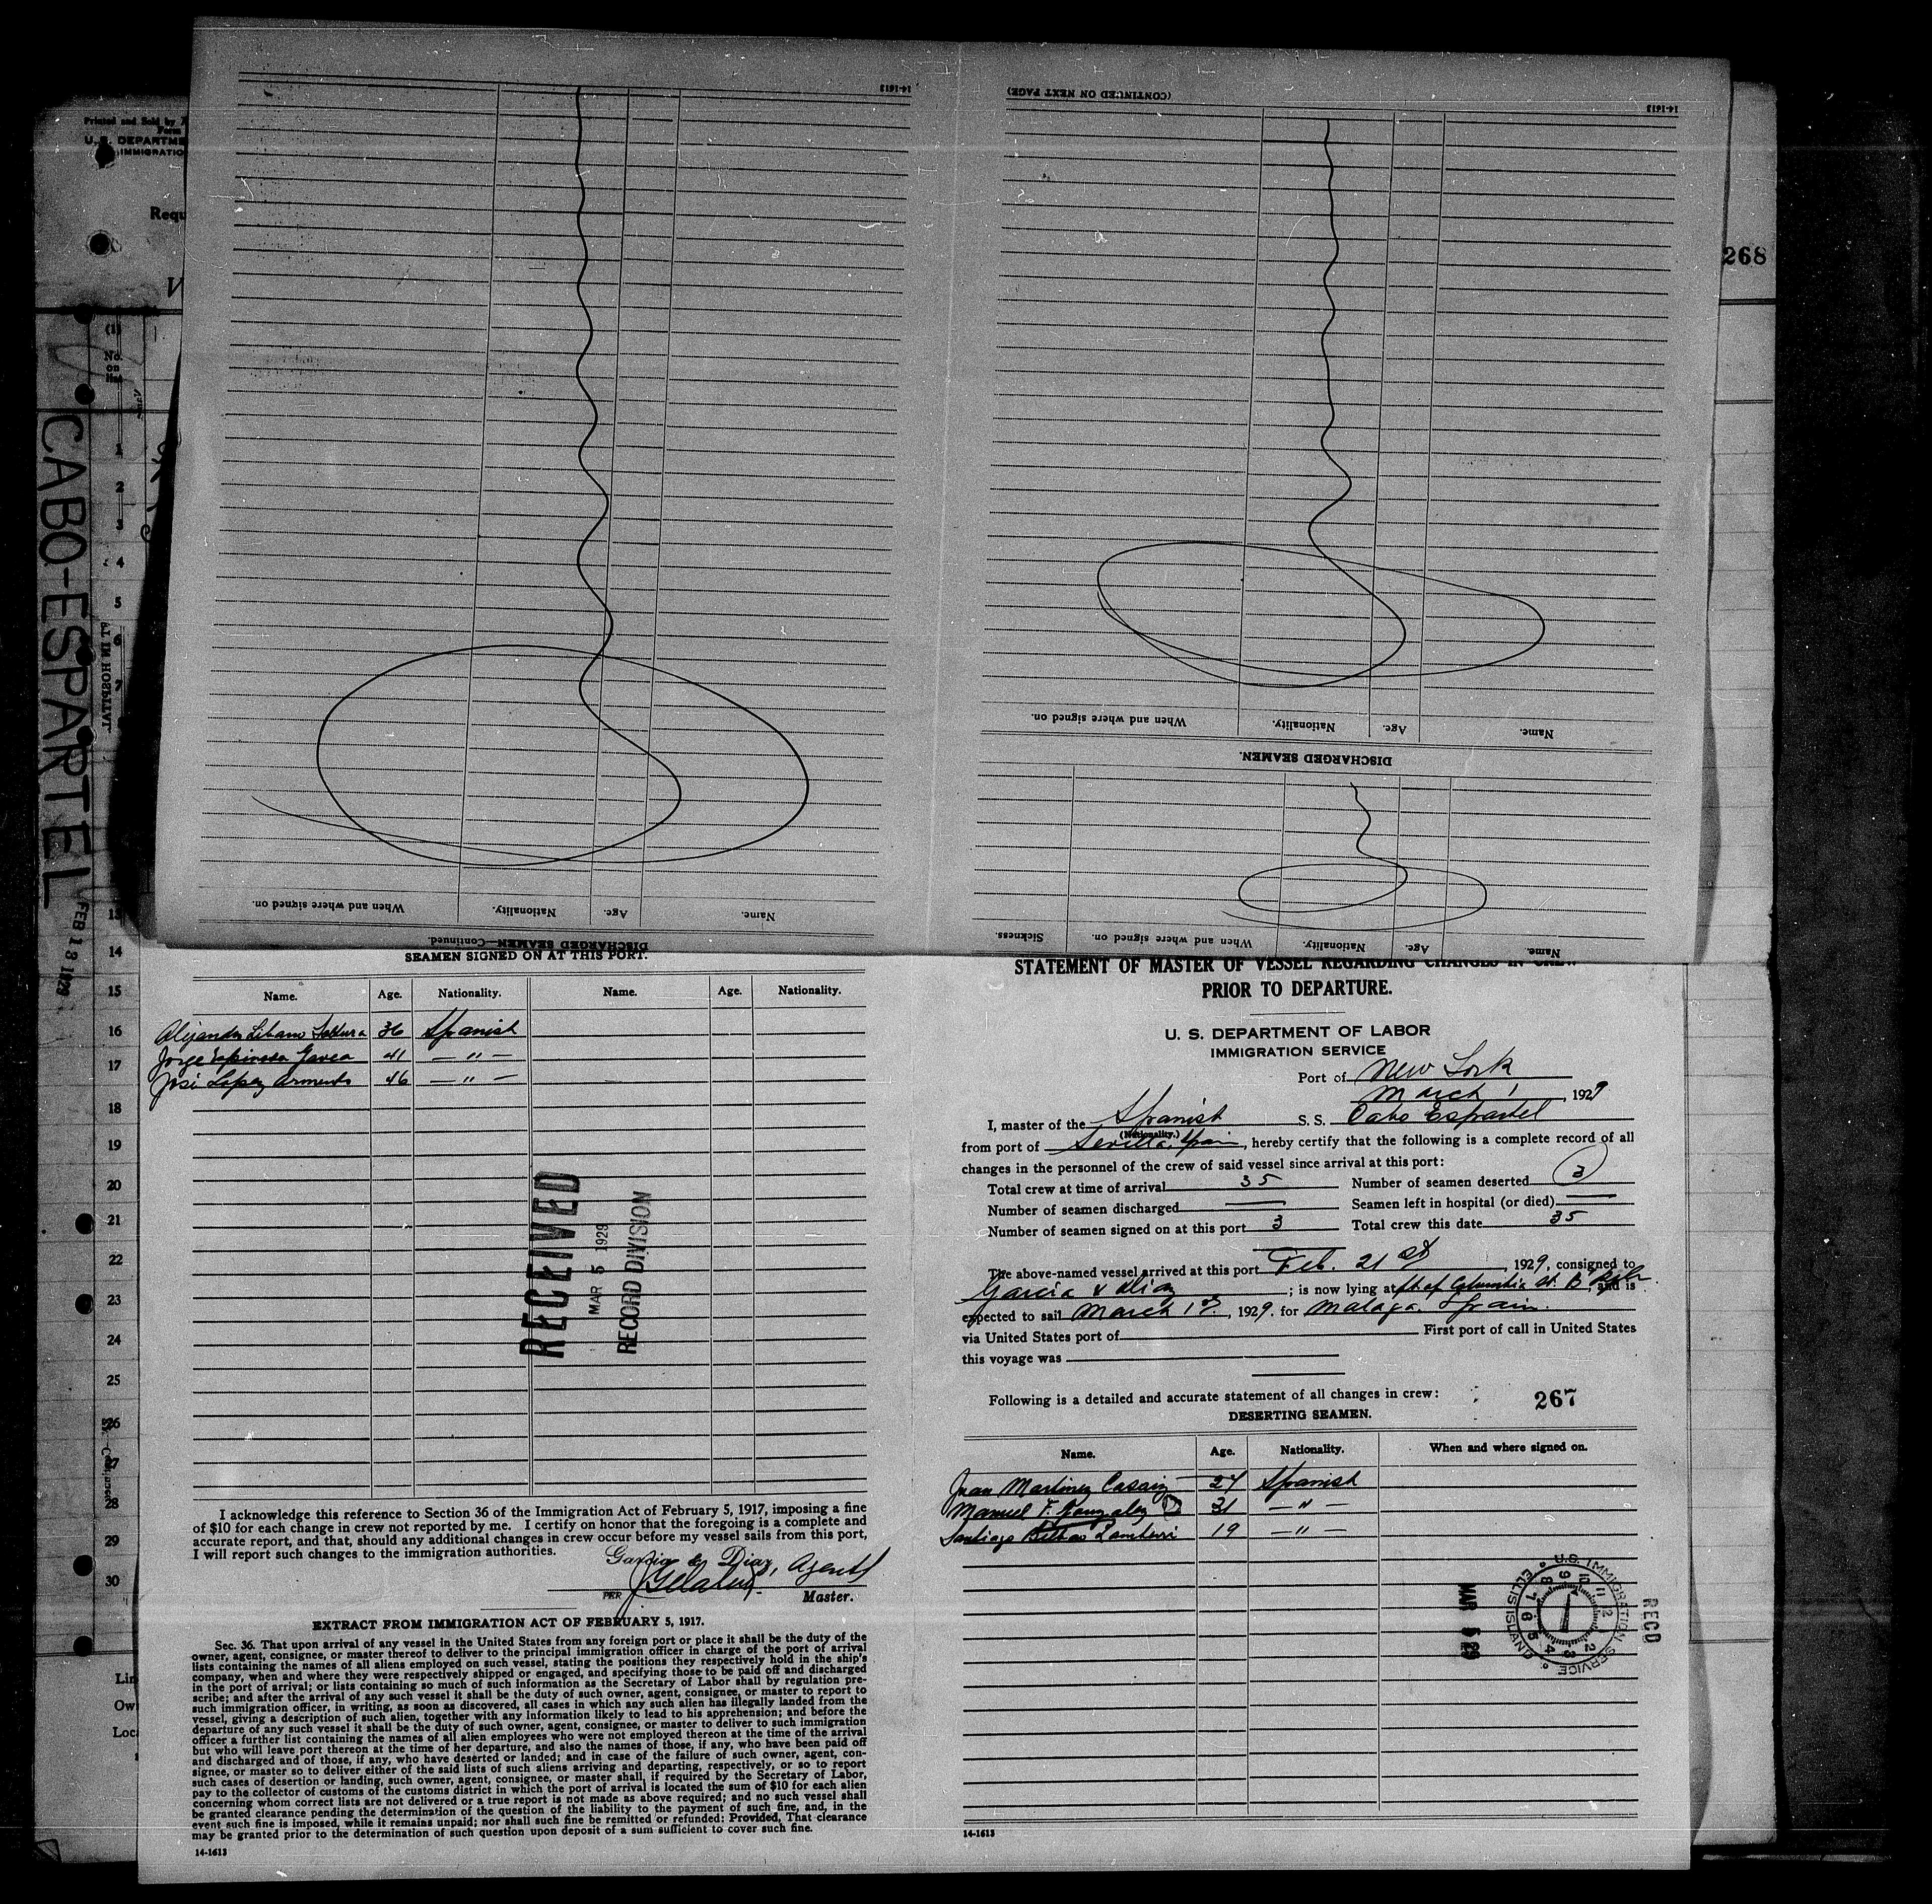 Printed and Sold by
Form
U. S. DEPARTME
IMMIGRATIO
Requ
(1)
No.
on
list
1
2
3
4
5
6
7
13
14
15
16
17
18
19
20
21
22
23
24
25
26
27
28
29
30
CABO-ESPARTEL
FEB 18 1929
AT IN HOSPITAL
Lin
Own
Loca
268
14-1613
DISCHARGED SEAMEN—Continued.
Name.
Age.
Nationality.
When and where signed on.
(CONTINUED ON NEXT PAGE)
14-1613
Name.
Age.
Nationality.
When and where signed on.
DISCHARGED SEAMEN.
Name.
Age.
Nationality.
When and where signed on.
Sickness.
SEAMEN SIGNED ON AT THIS PORT.
Name. Age. Nationality. Name. Age. Nationality.
Alejandro Libano 36 Spanish
Jorge Espinosa 41 — " —
José Lopez Armento 46 — " —
RECEIVED
MAR 5 1929
RECORD DIVISION
I acknowledge this reference to Section 36 of the Immigration Act of February 5, 1917, imposing a fine
of $10 for each change in crew not reported by me. I certify on honor that the foregoing is a complete and
accurate report, and that, should any additional changes in crew occur before my vessel sails from this port,
I will report such changes to the immigration authorities.
Garcia & Diaz, Agents
PER
Master.
EXTRACT FROM IMMIGRATION ACT OF FEBRUARY 5, 1917.
Sec. 36. That upon arrival of any vessel in the United States from any foreign port or place it shall be the duty of the
owner, agent, consignee, or master thereof to deliver to the principal immigration officer in charge of the port of arrival
lists containing the names of all aliens employed on such vessel, stating the positions they respectively hold in the ship's
company, when and where they were respectively shipped or engaged, and specifying those to be paid off and discharged
in the port of arrival; or lists containing so much of such information as the Secretary of Labor shall by regulation pre-
scribe; and after the arrival of any such vessel it shall be the duty of such owner, agent, consignee, or master to report to
such immigration officer, in writing, as soon as discovered, all cases in which any such alien has illegally landed from the
vessel, giving a description of such alien, together with any information likely to lead to his apprehension; and before the
departure of any such vessel it shall be the duty of such owner, agent, consignee, or master to deliver to such immigration
officer a further list containing the names of all alien employees who were not employed thereon at the time of the arrival
but who will leave port thereon at the time of her departure, and also the names of those, if any, who have been paid off
and discharged and of those, if any, who have deserted or landed; and in case of the failure of such owner, agent, con-
signee, or master so to deliver either of the said lists of such aliens arriving and departing, respectively, or so to report
such cases of desertion or landing, such owner, agent, consignee, or master shall, if required by the Secretary of Labor,
pay to the collector of customs of the customs district in which the port of arrival is located the sum of $10 for each alien
concerning whom correct lists are not delivered or a true report is not made as above required; and no such vessel shall
be granted clearance pending the determination of the question of the liability to the payment of such fine, and, in the
event such fine is imposed, while it remains unpaid; nor shall such fine be remitted or refunded: Provided, That clearance
may be granted prior to the determination of such question upon deposit of a sum sufficient to cover such fine.
14-1613
STATEMENT OF MASTER OF VESSEL REGARDING CHANGES IN CREW
PRIOR TO DEPARTURE.
U. S. DEPARTMENT OF LABOR
IMMIGRATION SERVICE
Port of New York
March 1, 1929
I, master of the Spanish S. S. Cabo Espartel
(Nationality.)
from port of Sevilla, Spain, hereby certify that the following is a complete record of all
changes in the personnel of the crew of said vessel since arrival at this port:
Total crew at time of arrival 35 Number of seamen deserted 3
Number of seamen discharged — Seamen left in hospital (or died) —
Number of seamen signed on at this port 3 Total crew this date 35
The above-named vessel arrived at this port Feb. 21st, 1929, consigned to
Garcia & Diaz; is now lying at ft of Columbia St. B'klyn, and is
expected to sail March 1st, 1929. for Malaga, Spain.
via United States port of First port of call in United States
this voyage was
Following is a detailed and accurate statement of all changes in crew:
267
DESERTING SEAMEN.
Name. Age. Nationality. When and where signed on.
Juan Martinez 27 Spanish
Manuel F. Gonzalez 31 — " —
Santiago Bilbao 19 — " —
RECD
U.S. IMMIGRATION SERVICE
ELLIS ISLAND
MAR 5 29
14-1613